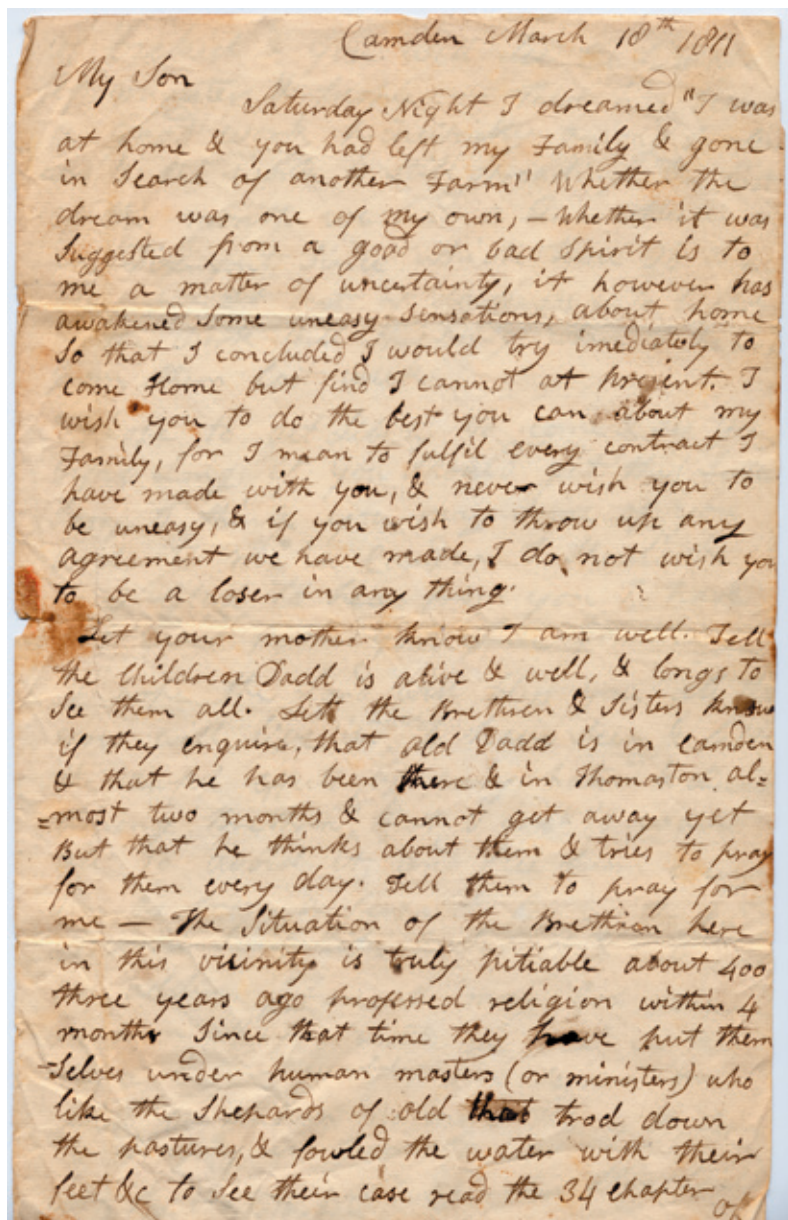 Camden March 18th 1811
My Son
Saturday Night I dreamed "I was
at home & you had left my Family & gone
in Search of another Farm" Whether the
dream was one of my own, – Whether it was
Suggested from a good or bad Spirit is to
me a matter of uncertainty, it however has
awakened Some uneasy Sensations, about home
So that I concluded I would try imediately to
come Home but find I cannot at present. I
wish you to do the best you can about my
Family, for I mean to fulfil every contract I
have made with you, & never wish you to
be uneasy, & if you wish to throw up any
agreement we have made, I do not wish you
to be a loser in any thing.
Let your mother know I am well. Tell
the Children Dadd is alive & well, & longs to
See them all. Lett the Brethren & Sisters know
if they enquire, that old Dadd is in Camden
& that he has been there & in Thomaston al=
=most two months & cannot get away yet
But that he thinks about them & tries to pray
for them every day. Tell them to pray for
me — The Situation of the Brethren here
in this vicinity is truly pitiable about 400
three years ago professed religion within 4
months Since that time they have put them
-Selves under human masters (or ministers) who
like the Shepards of old that trod down
the pastures, & fowled the water with their
feet &c to See their case read the 34 chapter
of